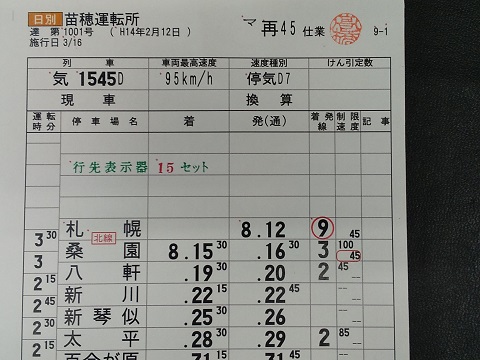 日別 苗穂運転所 マ 再45 仕業 9-1
達 第1001号 ( H14年2月12日 )
施行日 3/16
列車 車両最高速度 速度種別 けん引定数
気 1545D 95km/h 停気D7
現車 換算
運転時分 停車場名 着 発(通) 着発線 制限速度 記事
行先表示器 15セット
札幌 8.12 9 45
3 30 北線
桑園 8.15 30 .16 30 3 100 45
3
八軒 .19 30 .20 2 45
2 15
新川 .22 15 .22 45
2 15
新琴似 .25 30 .26
2 30
太平 .28 30 .29 2 85
2 45